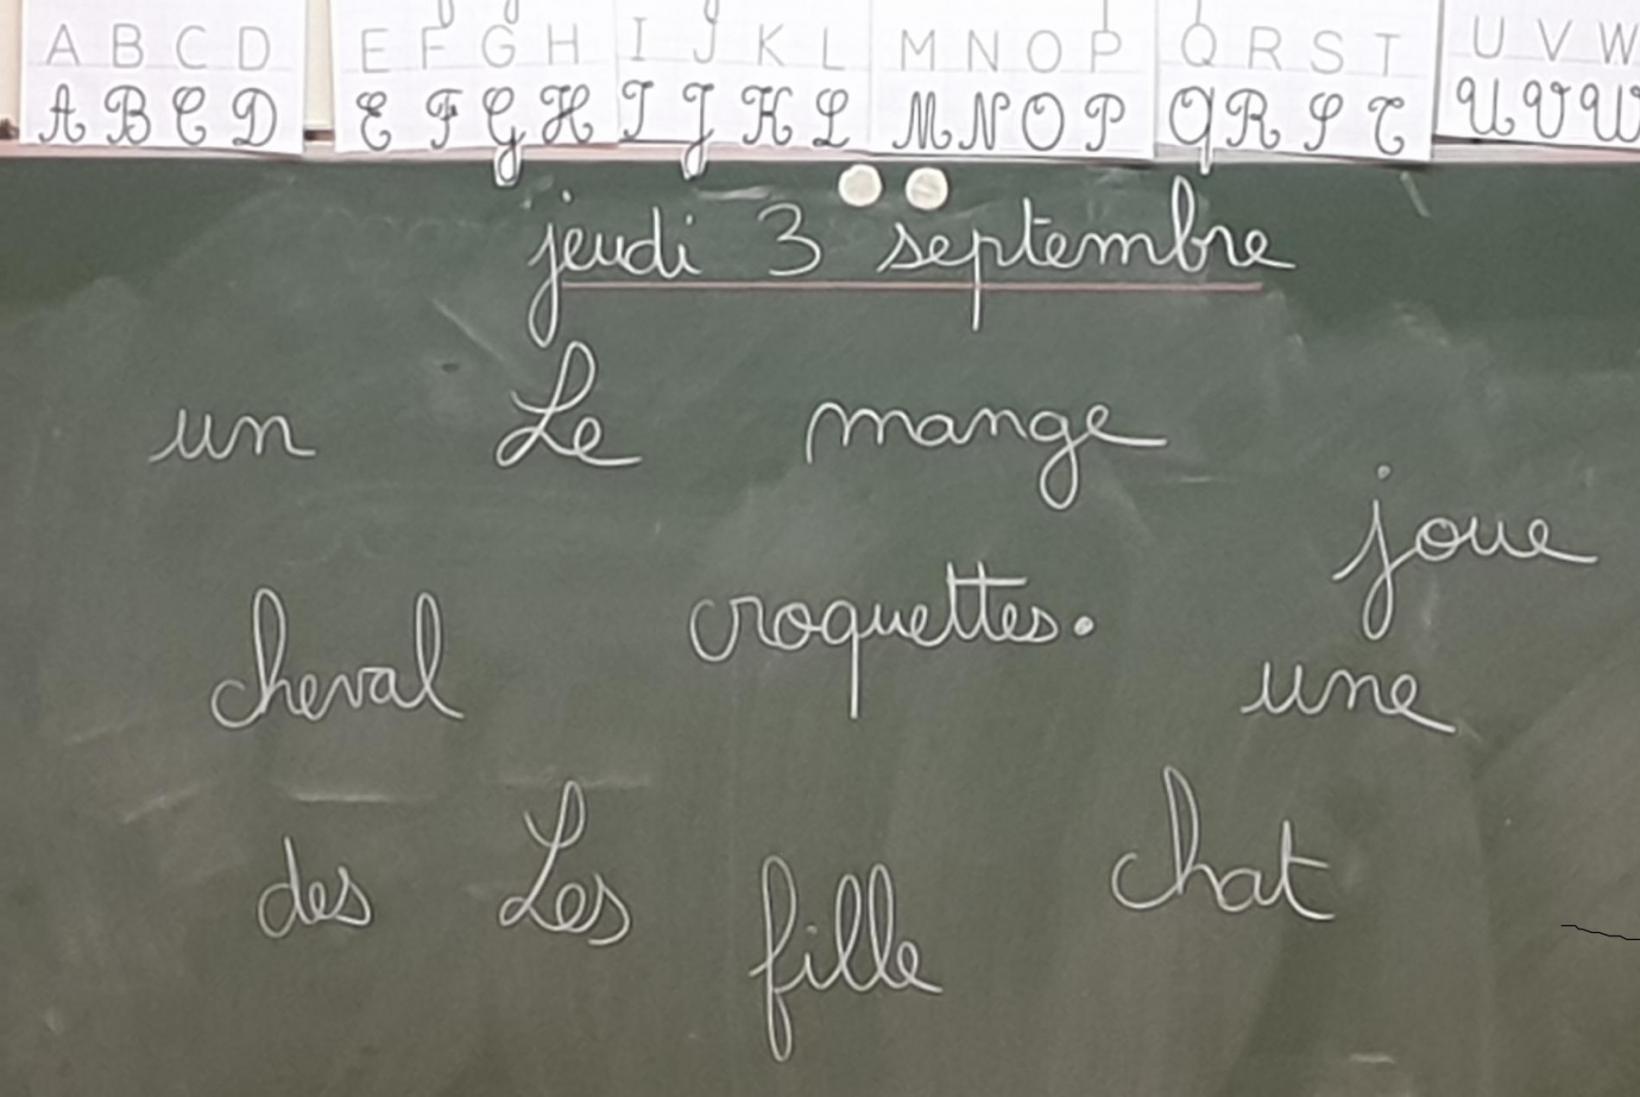 A B C D E F G H I J K L M N O P Q R S T U V W
A B C D E F G H I J K L M N O P Q R S T U V W
jeudi 3 septembre
un Le mange
joue
cheval croquettes.
une
des Les fille chat